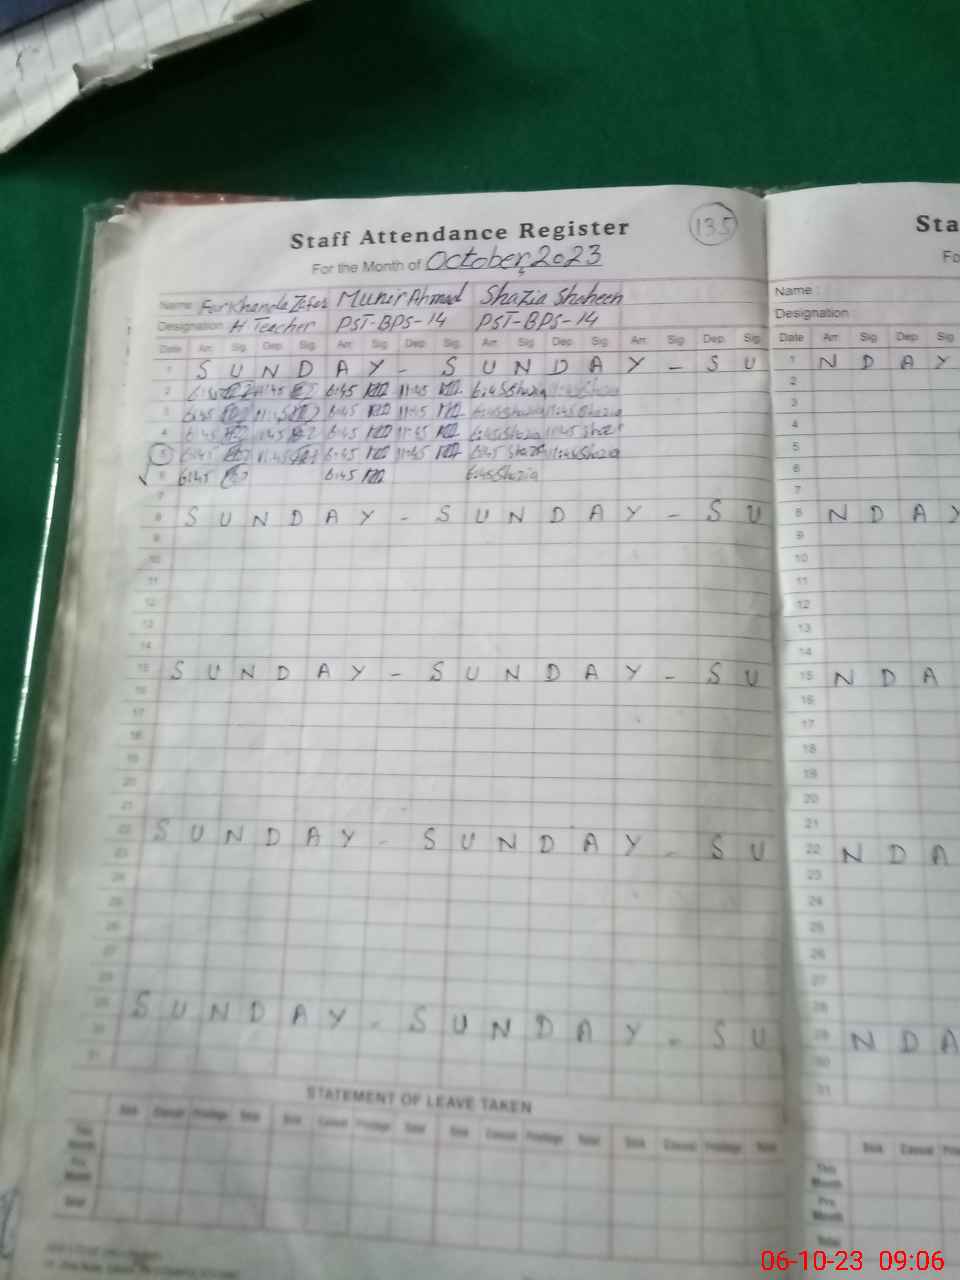 Staff Attendance Register
135
For the Month of October, 2023
Name: Farkhanda Zafer Munir Ahmad Shazia Shaheen
Designation H Teacher PST-BPS-14 PST-BPS-14
Date Arr. Sig. Dep. Sig. Arr. Sig. Dep. Sig. Arr. Sig. Dep. Sig. Arr. Sig. Dep. Sig.
1 S U N D A Y - S U N D A Y - S U
2 11:45 6:45 11:45 6:45 Shazia 11:45 Shazia
3 6:45 11:45 6:45 11:45 6:45 Shazia 11:45 Shazia
4 6:45 11:45 6:45 11:45 6:45 Shazia 11:45 Shazia
5 6:45 11:45 6:45 11:45 6:45 Shazia 11:45 Shazia
6 6:45 6:45 6:45 Shazia
7
8 S U N D A Y - S U N D A Y - S U
9
10
11
12
13
14
15 S U N D A Y - S U N D A Y - S U
16
17
18
19
20
21
22 S U N D A Y - S U N D A Y - S U
23
24
25
26
27
28
29 S U N D A Y - S U N D A Y - S U
30
31
STATEMENT OF LEAVE TAKEN
Sick Casual Privilege Total Sick Casual Privilege Total Sick Casual Privilege Total Sick Casual Privilege Total
This Month
Pre. Month
Total
Sta
Fo
Name :
Designation :
Date Arr. Sig. Dep. Sig
1 N D A Y
2
3
4
5
6
7
8 N D A Y
9
10
11
12
13
14
15 N D A
16
17
18
19
20
21
22 N D A
23
24
25
26
27
28
29 N D A
30
31
Sick Casual
This Month
Pre. Month
Total
06-10-23 09:06